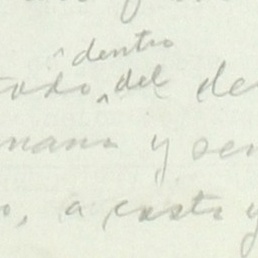 dentro
todo del de
mana y sen
o, a casta y